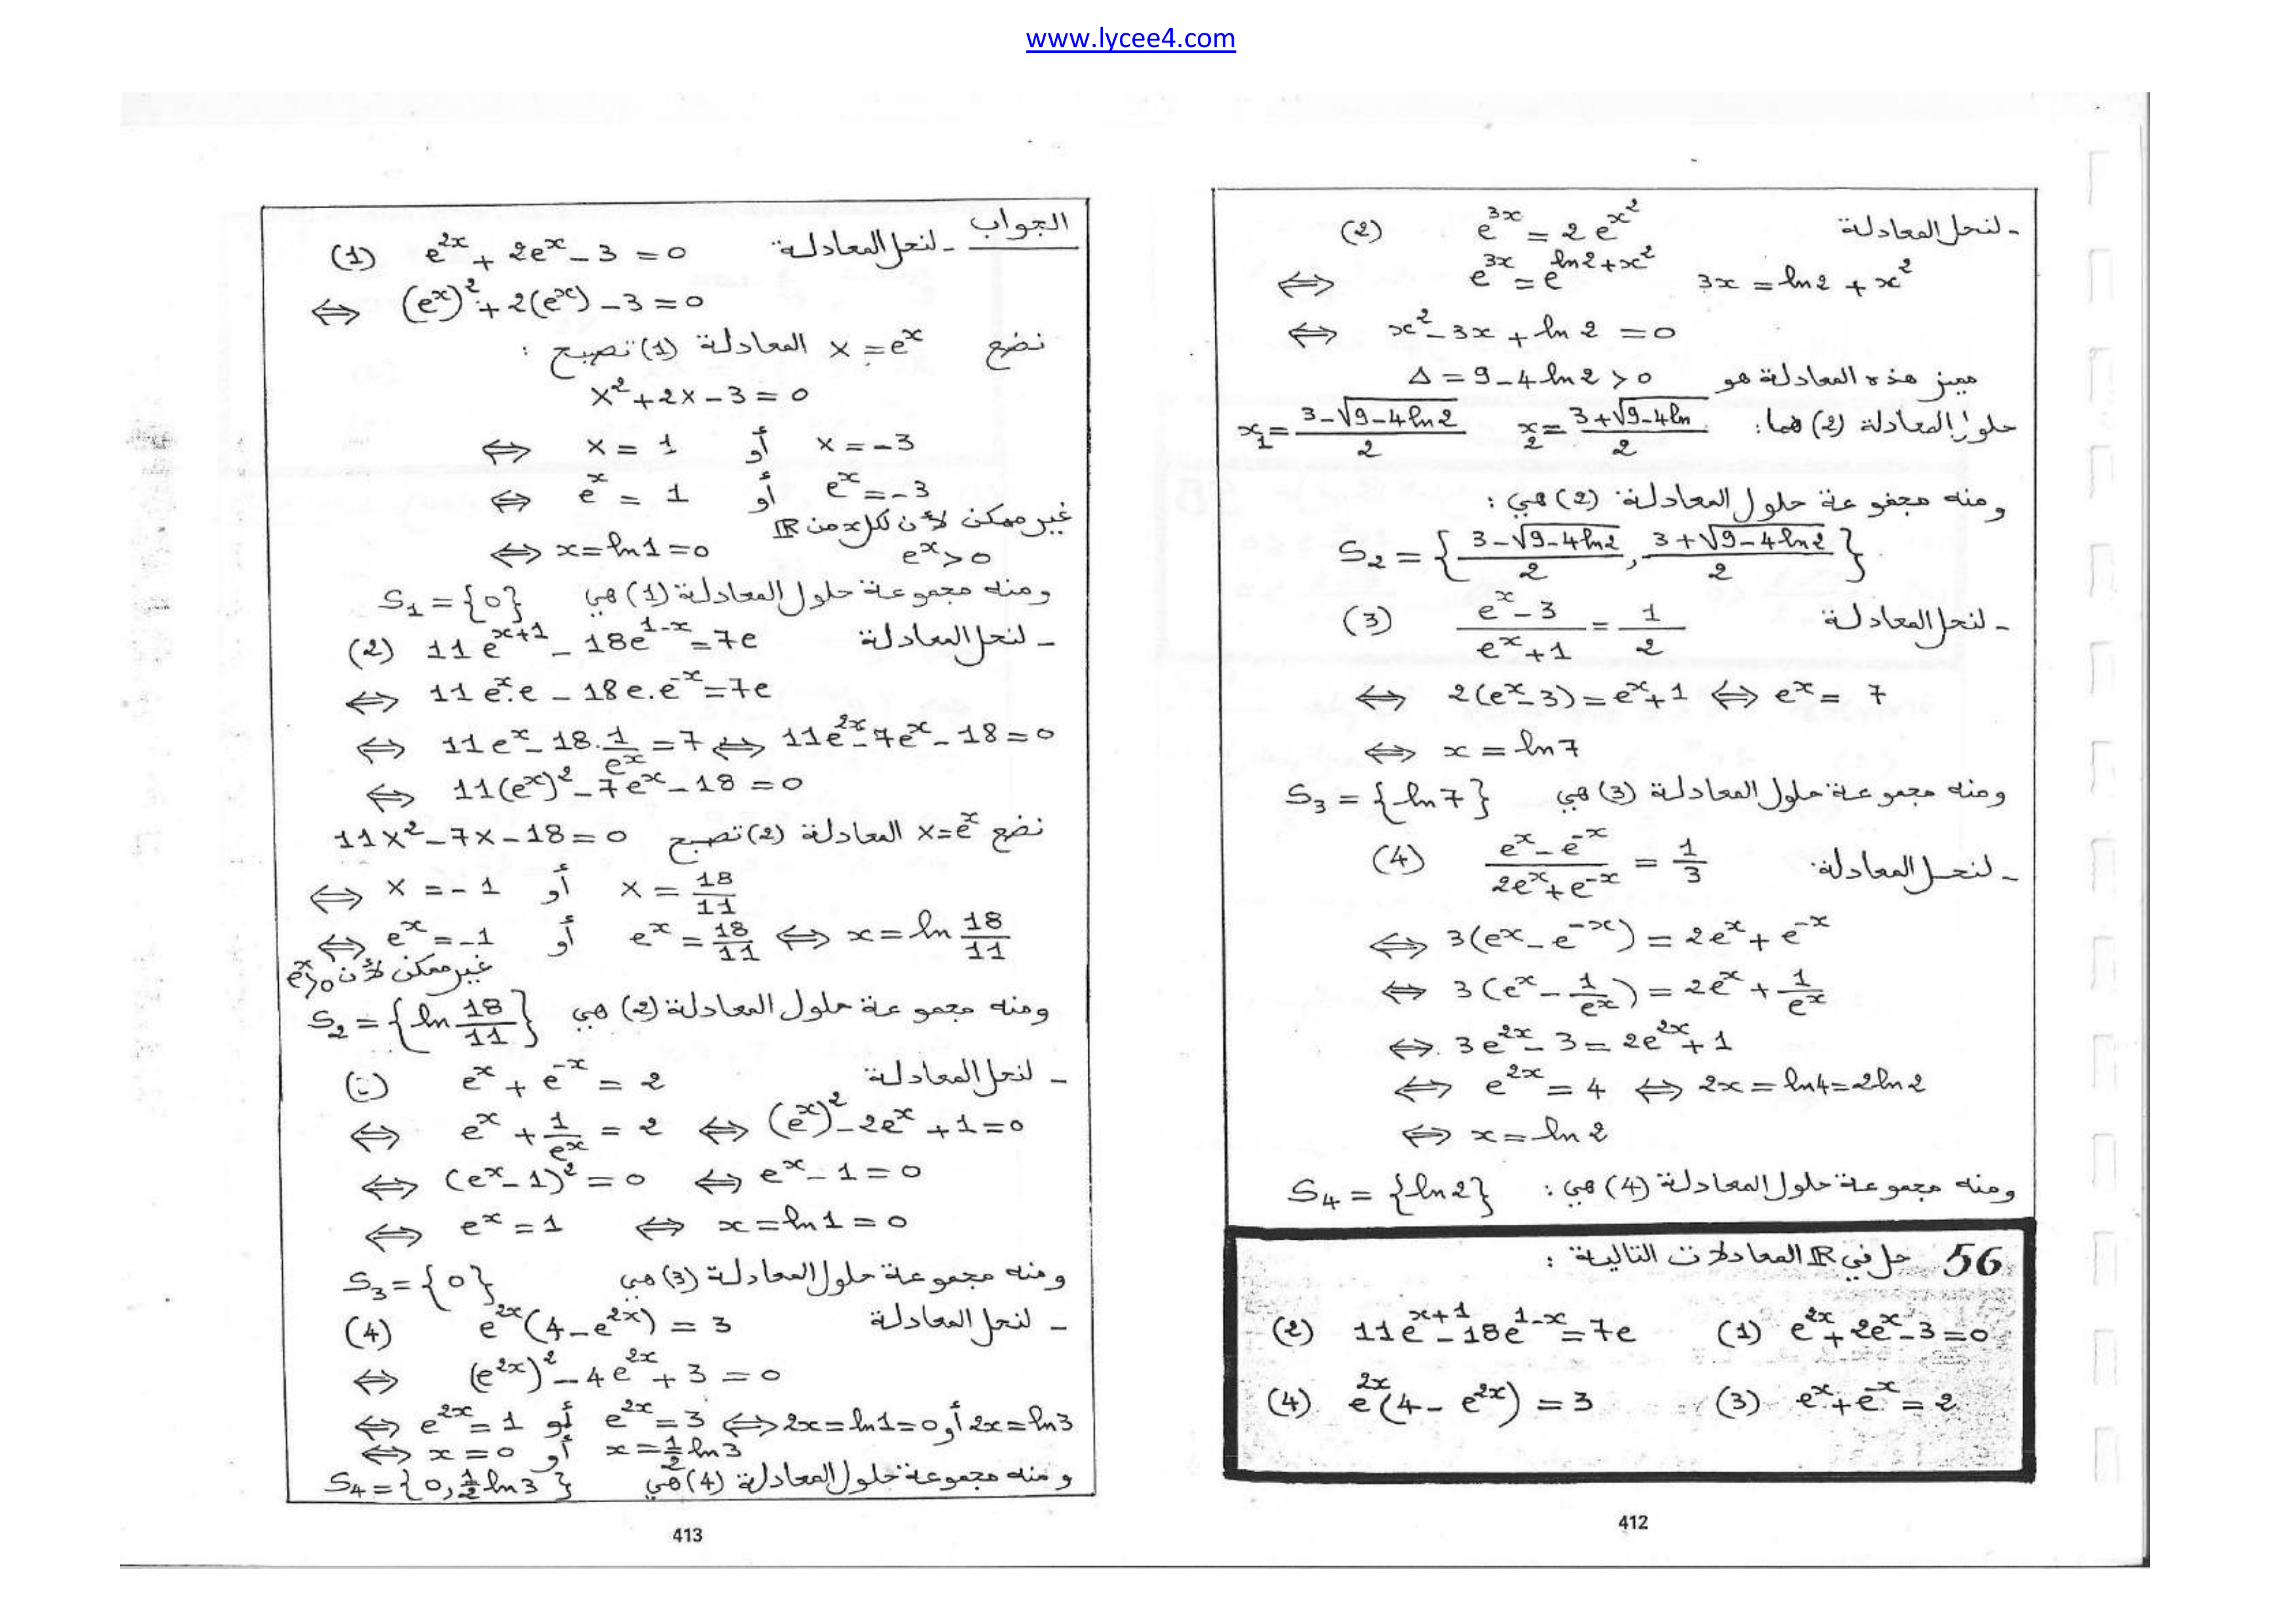 www.lycee4.com
- لنحل المعادلة (2) e^{3x} = 2 e^{x^2}
⇔ e^{3x} = e^{ln2+x^2} 3x = ln2 + x^2
⇔ x^2 - 3x + ln 2 = 0
مميز هذه المعادلة هو Δ = 9 - 4 ln 2 > 0
حلول المعادلة (2) هما: x_2 = \frac{3+\sqrt{9-4ln}}{2} x_1 = \frac{3-\sqrt{9-4ln2}}{2}
ومنه مجموعة حلول المعادلة (2) هي:
S_2 = { \frac{3-\sqrt{9-4ln2}}{2} , \frac{3+\sqrt{9-4ln2}}{2} }
- لنحل المعادلة (3) \frac{e^x - 3}{e^x + 1} = \frac{1}{2}
⇔ 2(e^x - 3) = e^x + 1 ⇔ e^x = 7
⇔ x = ln 7
ومنه مجموعة حلول المعادلة (3) هي S_3 = {ln 7}
- لنحل المعادلة (4) \frac{e^x - e^{-x}}{2e^x + e^{-x}} = \frac{1}{3}
⇔ 3(e^x - e^{-x}) = 2e^x + e^{-x}
⇔ 3(e^x - \frac{1}{e^x}) = 2e^x + \frac{1}{e^x}
⇔ 3e^{2x} - 3 = 2e^{2x} + 1
⇔ e^{2x} = 4 ⇔ 2x = ln4 = 2ln2
⇔ x = ln 2
ومنه مجموعة حلول المعادلة (4) هي: S_4 = {ln2}
56 حل في ℝ المعادلات التالية:
(1) e^{2x} + 2e^x - 3 = 0 (2) 11e^{x+1} - 18e^{1-x} = 7e
(3) e^x + e^{-x} = 2 (4) e^{2x}(4 - e^{2x}) = 3
412
الجواب
- لنحل المعادلة (1) e^{2x} + 2e^x - 3 = 0
⇔ (e^x)^2 + 2(e^x) - 3 = 0
نضع X = e^x المعادلة (1) تصبح:
X^2 + 2X - 3 = 0
⇔ X = 1 أو X = -3
⇔ e^x = 1 أو e^x = -3
غير ممكن لأن لكل x من ℝ
⇔ x = ln1 = 0 e^x > 0
ومنه مجموعة حلول المعادلة (1) هي S_1 = {0}
- لنحل المعادلة (2) 11e^{x+1} - 18e^{1-x} = 7e
⇔ 11e^x.e - 18e.e^{-x} = 7e
⇔ 11e^x - 18.\frac{1}{e^x} = 7 ⇔ 11e^{2x} - 7e^x - 18 = 0
⇔ 11(e^x)^2 - 7e^x - 18 = 0
نضع X = e^x المعادلة (2) تصبح 11X^2 - 7X - 18 = 0
⇔ X = -1 أو X = \frac{18}{11}
⇔ e^x = -1 أو e^x = \frac{18}{11} ⇔ x = ln \frac{18}{11}
غير ممكن لأن e^x > 0
ومنه مجموعة حلول المعادلة (2) هي S_2 = {ln \frac{18}{11}}
- لنحل المعادلة e^x + e^{-x} = 2
⇔ e^x + \frac{1}{e^x} = 2 ⇔ (e^x)^2 - 2e^x + 1 = 0
⇔ (e^x - 1)^2 = 0 ⇔ e^x - 1 = 0
⇔ e^x = 1 ⇔ x = ln1 = 0
ومنه مجموعة حلول المعادلة (3) هي S_3 = {0}
- لنحل المعادلة (4) e^{2x}(4 - e^{2x}) = 3
⇔ (e^{2x})^2 - 4e^{2x} + 3 = 0
⇔ e^{2x} = 1 أو e^{2x} = 3 ⇔ 2x = ln1 = 0 أو 2x = ln3
⇔ x = 0 أو x = \frac{1}{2} ln3
ومنه مجموعة حلول المعادلة (4) هي S_4 = {0, \frac{1}{2} ln3}
413